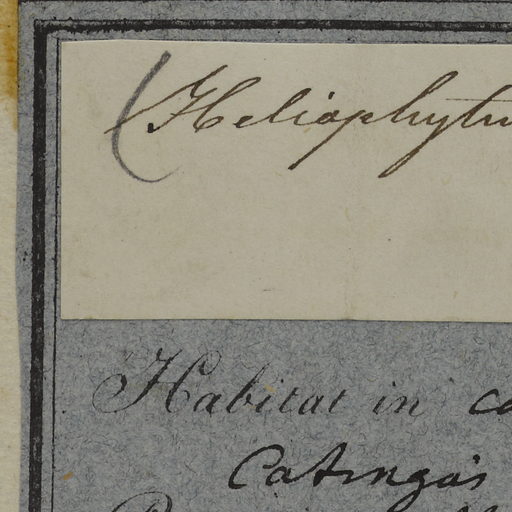 (Heliophytu
Habitat in ca
Catingas